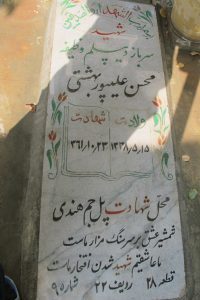 شهید
سرباز دیپلم وظیفه
محسن علیپور بهشتی
ولادت شهادت
۱۳۳۸/۵/۱۵ ۳۶۱/۱۰/۲۳
محل شهادت پل جم هندی
شمشیر عشق بر سر سنگ مزار ماست
ما عاشقیم شهید شدن افتخار ماست
قطعه ۲۸ ردیف ۲۲ شماره ۹۵